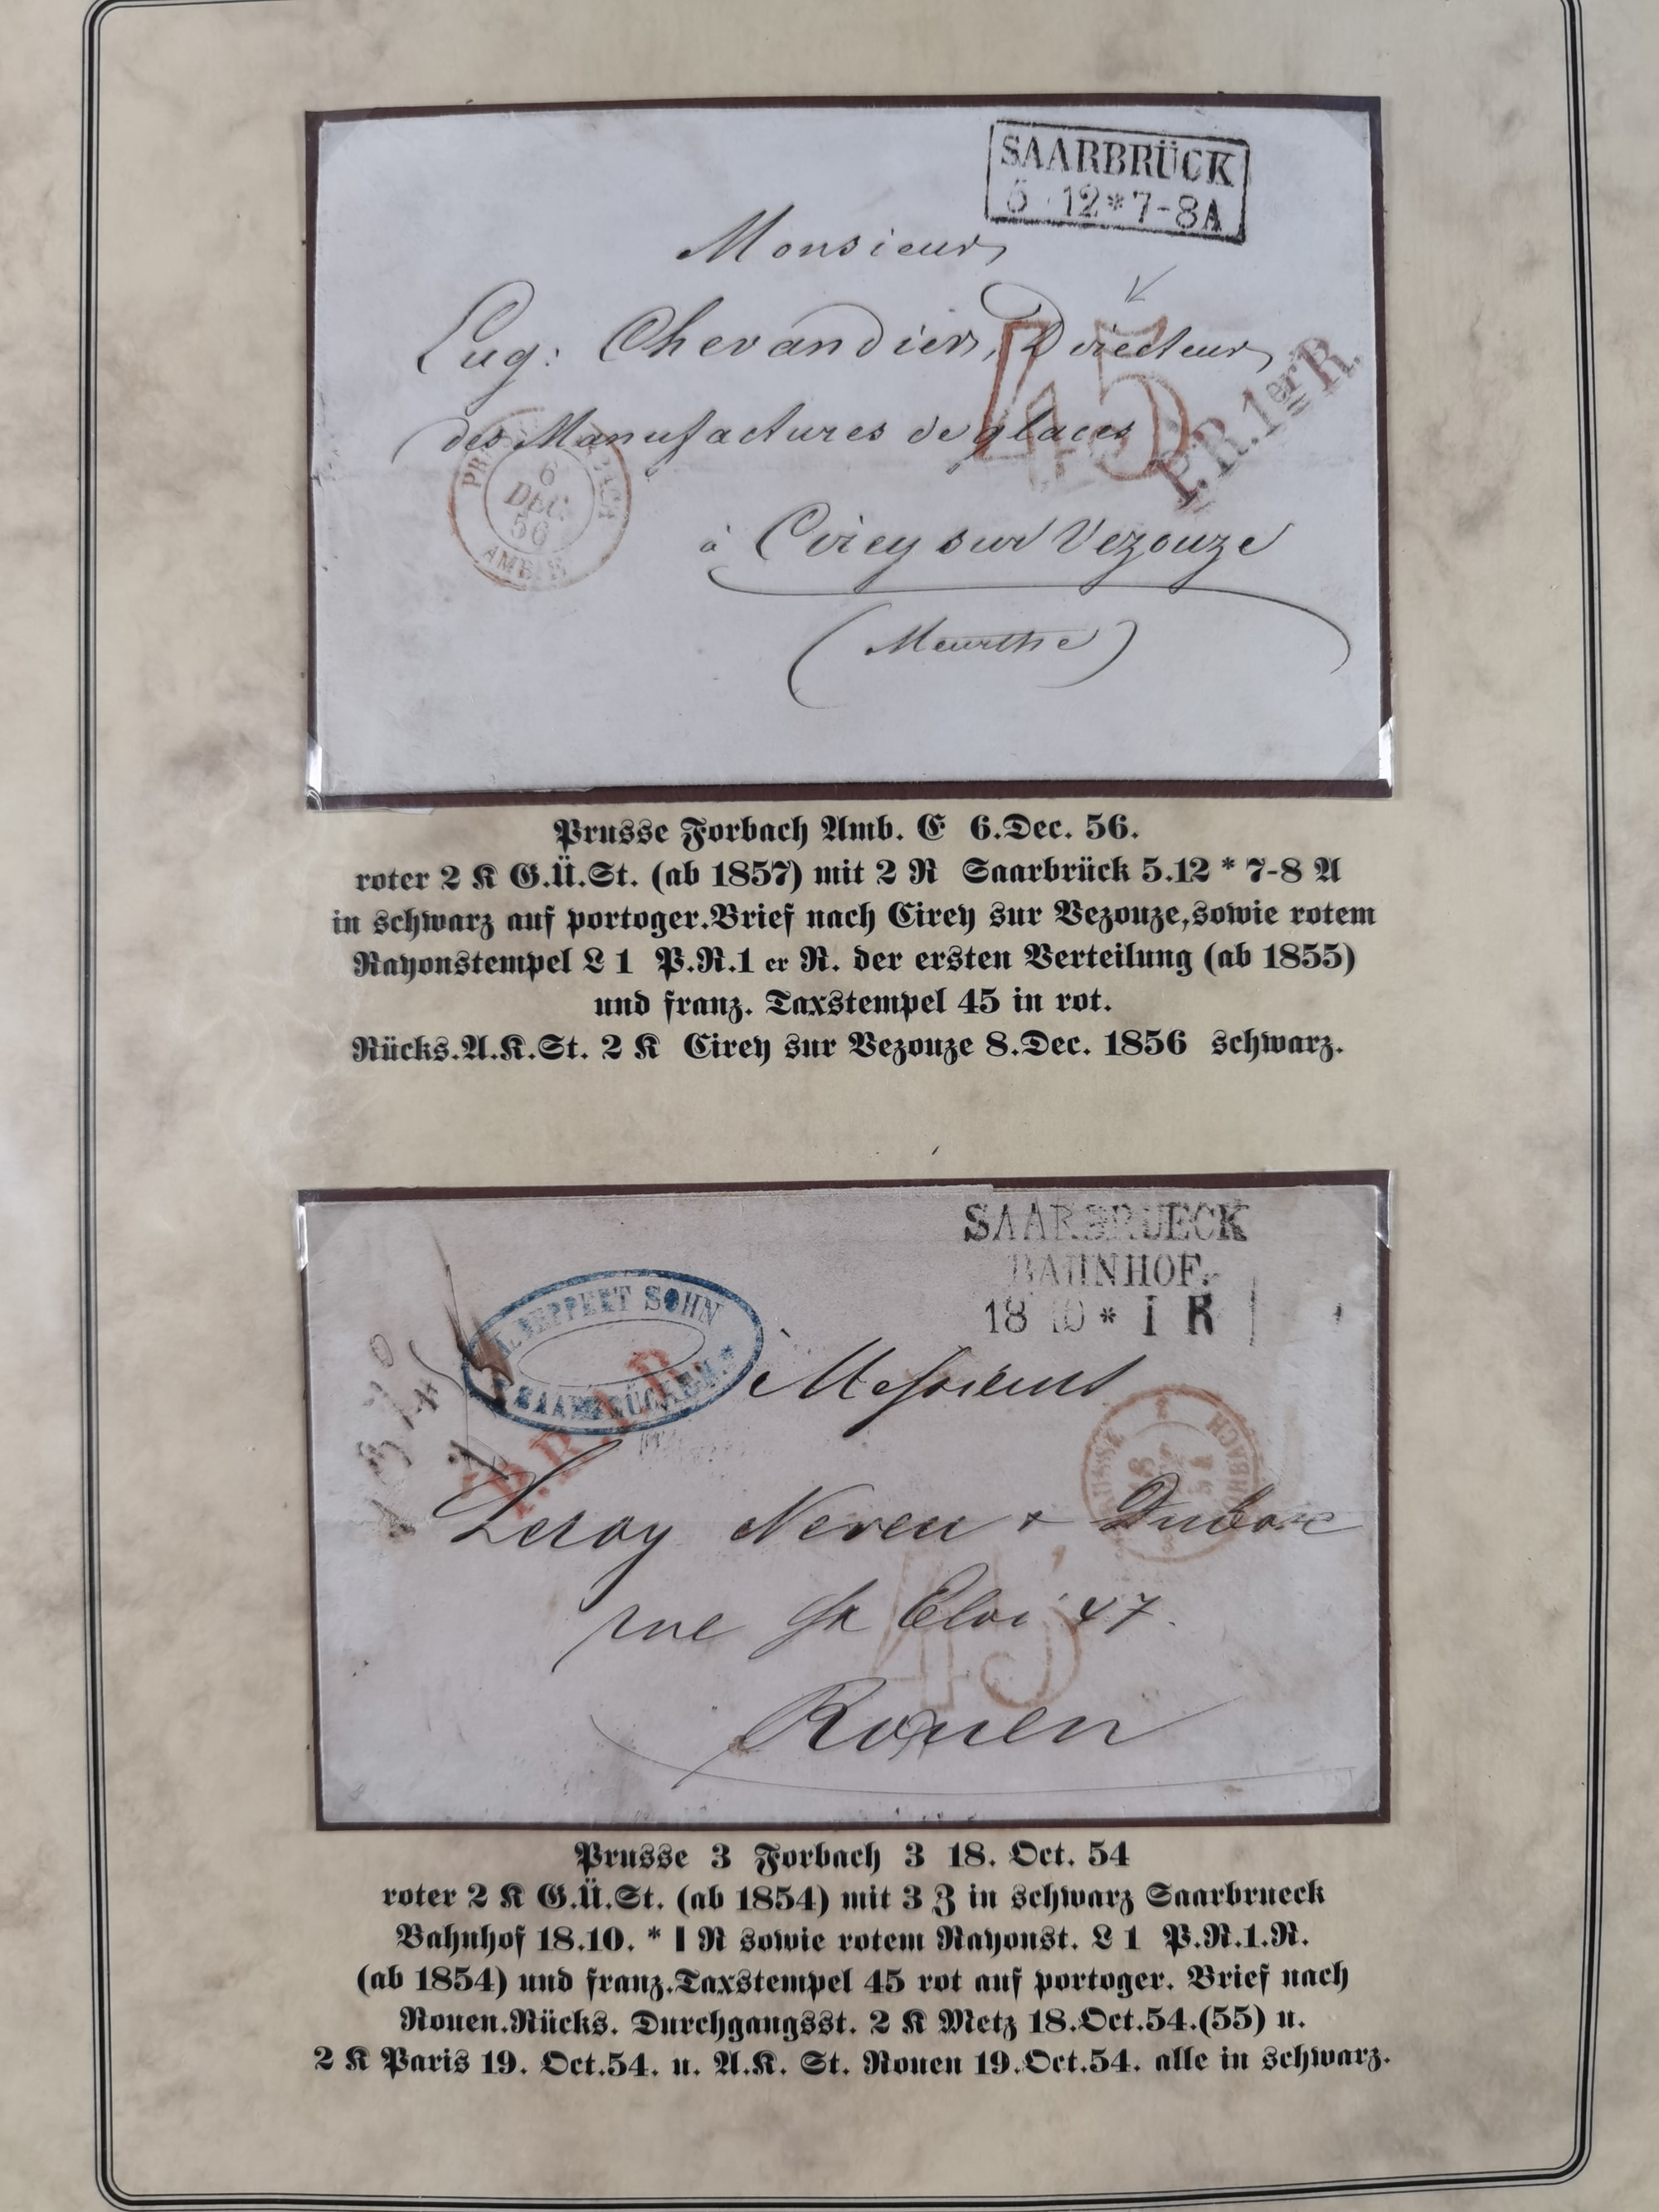 SAARBRÜCK
5 12*7-8A
Monsieur
Eug: Chevandier, Directeur
45
P.R.1er R.
des Manufactures de glaces
6
DEC.
56
AMB.
à Cirey sur Vezouze
(Meurthe)
Prusse Forbach Amb. E 6.Dec. 56.
roter 2 K G.Ü.St. (ab 1857) mit 2 R Saarbrück 5.12 * 7-8 A
in schwarz auf portoger.Brief nach Cirey sur Vezouze,sowie rotem
Rayonstempel L 1 P.R.1 er R. der ersten Verteilung (ab 1855)
und franz. Taxstempel 45 in rot.
Rücks.A.K.St. 2 K Cirey sur Vezouze 8.Dec. 1856 schwarz.
SAARBRUECK
BAHNHOF.
18 10 * I R
SOHN
SAARBRÜCKEN.*
à Messieurs
P.R.1.R
PRUSSE 3 FORBACH
18
54
Leroy Neveu & Dubosc
rue St Eloi 47.
45
Rouen
Prusse 3 Forbach 3 18. Oct. 54
roter 2 K G.Ü.St. (ab 1854) mit 3 Z in schwarz Saarbrueck
Bahnhof 18.10. * I R sowie rotem Rayonst. L 1 P.R.1.R.
(ab 1854) und franz.Taxstempel 45 rot auf portoger. Brief nach
Rouen.Rücks. Durchgangsst. 2 K Metz 18.Oct.54.(55) u.
2 K Paris 19. Oct.54. u. A.K. St. Rouen 19.Oct.54. alle in schwarz.